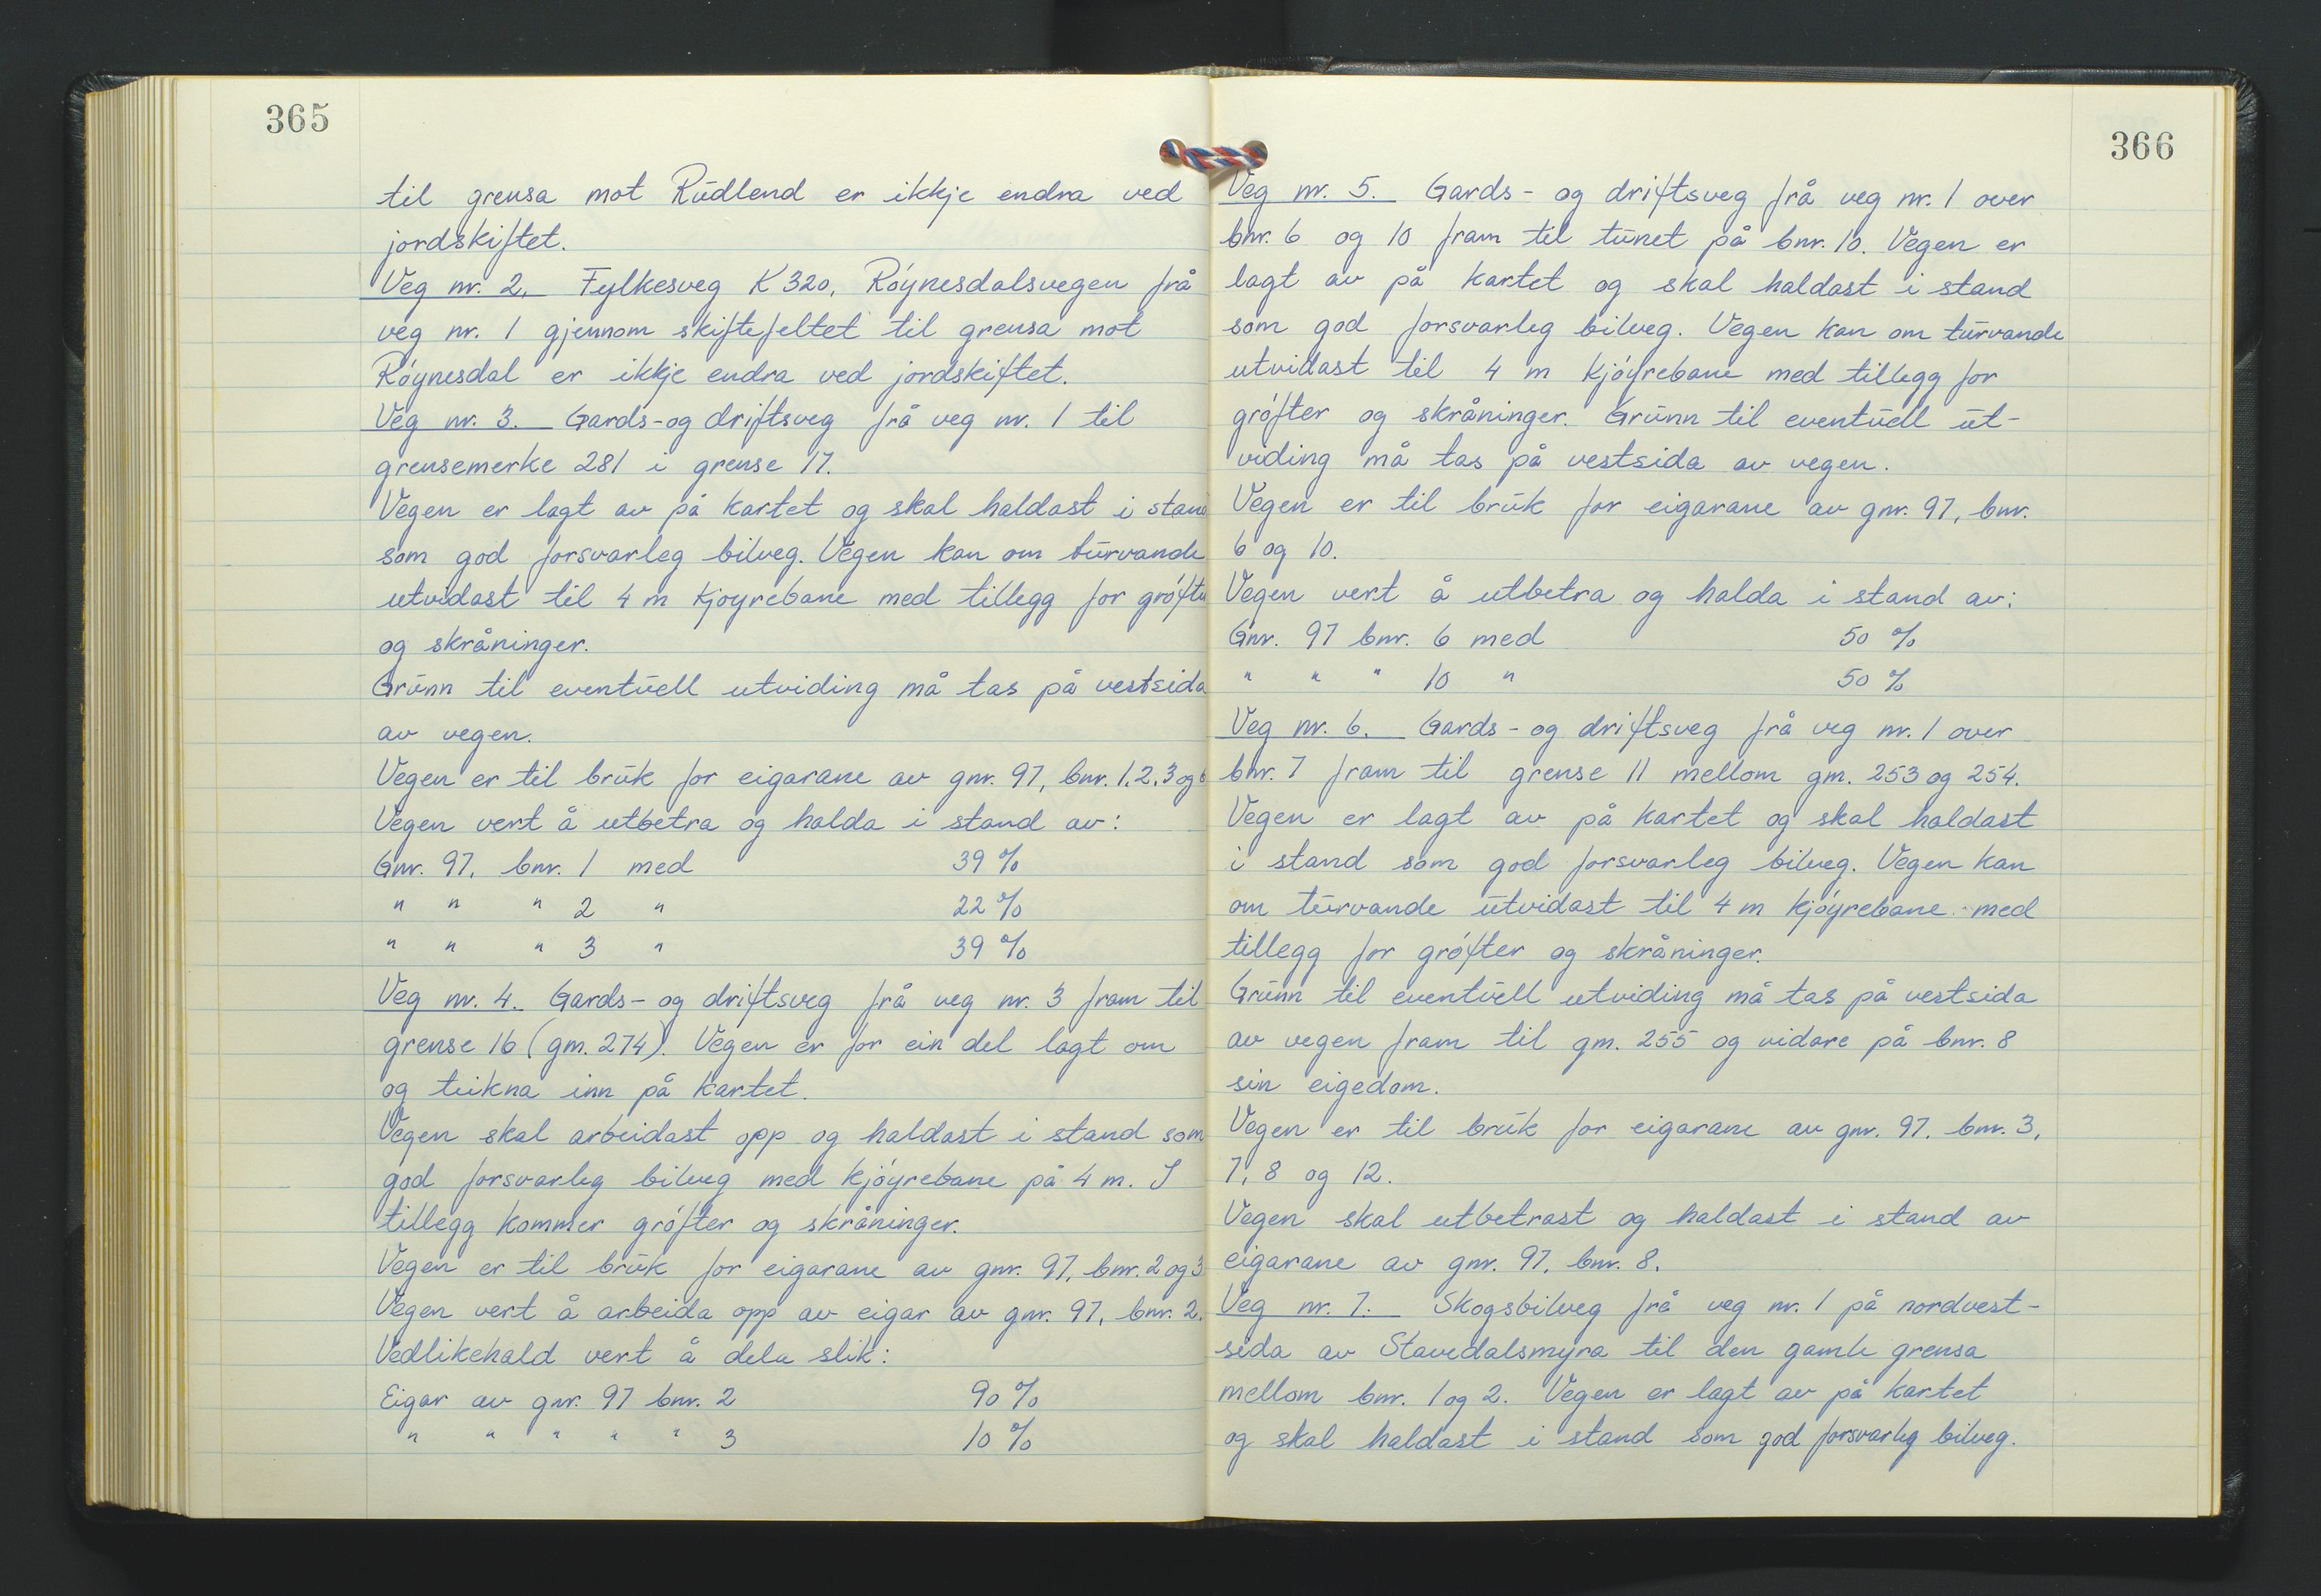 365
til grensa mot Rudlend er ikkje endra ved
jordskiftet.
Veg nr. 2. Fylkesveg K 320, Røynesdalsvegen frå
veg nr. 1 gjennom skiftefeltet til grensa mot
Røynesdal er ikkje endra ved jordskiftet.
Veg nr. 3. Gards- og driftsveg frå veg nr. 1 til
grensemerke 281 i grense 17.
Vegen er lagt av på kartet og skal haldast i stand
som god forsvarleg bilveg. Vegen kan om turvande
utvidast til 4 m kjøyrebane med tillegg for grøfter
og skråninger.
Grunn til eventuell utviding må tas på vestsida
av vegen.
Vegen er til bruk for eigarane av gnr. 97, bnr. 1, 2, 3 og 6
Vegen vert å utbetra og halda i stand av:
Gnr. 97, bnr. 1 med 39 %
" " " 2 " 22 %
" " " 3 " 39 %
Veg nr. 4. Gards- og driftsveg frå veg nr. 3 fram til
grense 16 (gm. 274). Vegen er for ein del lagt om
og teikna inn på kartet.
Vegen skal arbeidast opp og haldast i stand som
god forsvarleg bilveg med kjøyrebane på 4 m. I
tillegg kommer grøfter og skråninger.
Vegen er til bruk for eigarane av gnr. 97, bnr. 2 og 3
Vegen vert å arbeida opp av eigar av gnr. 97, bnr. 2.
Vedlikehald vert å dela slik:
Eigar av gnr. 97 bnr. 2 90 %
" " " " " 3 10 %
366
Veg nr. 5. Gards- og driftsveg frå veg nr. 1 over
bnr. 6 og 10 fram til tunet på bnr. 10. Vegen er
lagt av på kartet og skal haldast i stand
som god forsvarleg bilveg. Vegen kan om turvande
utvidast til 4 m kjøyrebane med tillegg for
grøfter og skråninger. Grunn til eventuell ut-
viding må tas på vestsida av vegen.
Vegen er til bruk for eigarane av gnr. 97, bnr.
6 og 10.
Vegen vert å utbetra og halda i stand av:
Gnr. 97 bnr. 6 med 50 %
" " " 10 " 50 %
Veg nr. 6. Gards- og driftsveg frå veg nr. 1 over
bnr. 7 fram til grense 11 mellom gm. 253 og 254.
Vegen er lagt av på kartet og skal haldast
i stand som god forsvarleg bilveg. Vegen kan
om turvande utvidast til 4 m kjøyrebane med
tillegg for grøfter og skråninger.
Grunn til eventuell utviding må tas på vestsida
av vegen fram til gm. 255 og vidare på bnr. 8
sin eigedom.
Vegen er til bruk for eigarane av gnr. 97, bnr. 3,
7, 8 og 12.
Vegen skal utbetrast og haldast i stand av
eigarane av gnr. 97, bnr. 8.
Veg nr. 7. Skogsbilveg frå veg nr. 1 på nordvest-
sida av Stavedalsmyra til den gamle grensa
mellom bnr. 1 og 2. Vegen er lagt av på kartet
og skal haldast i stand som god forsvarleg bilveg.